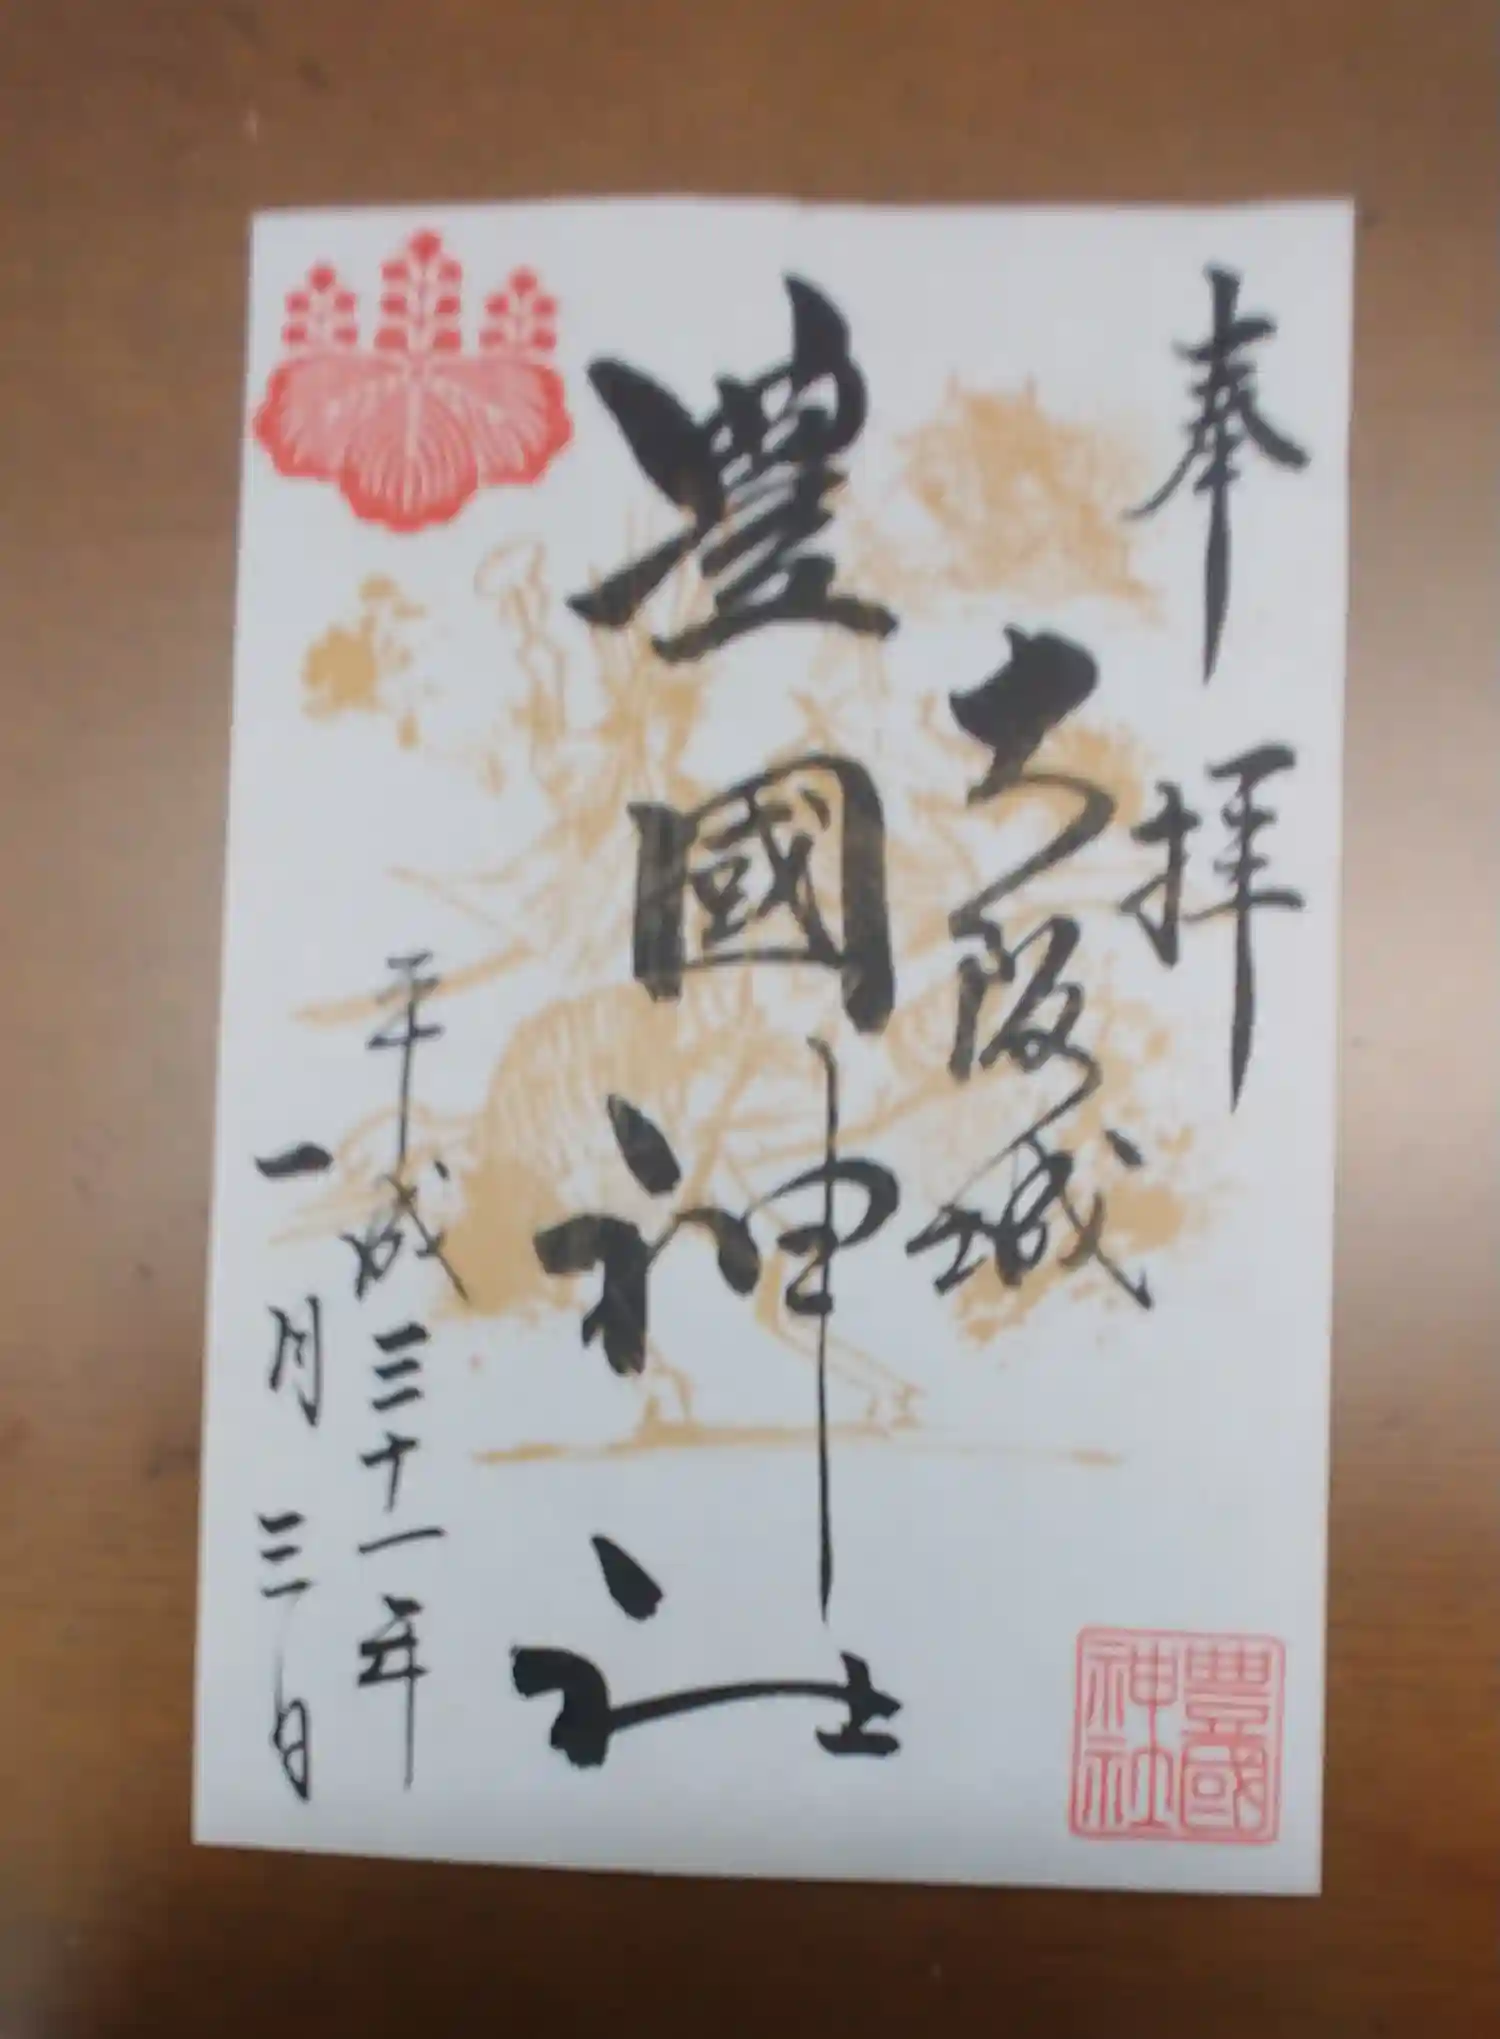 奉拝
大阪城
豊國神社
平成三十一年
一月三日
豊國
神社